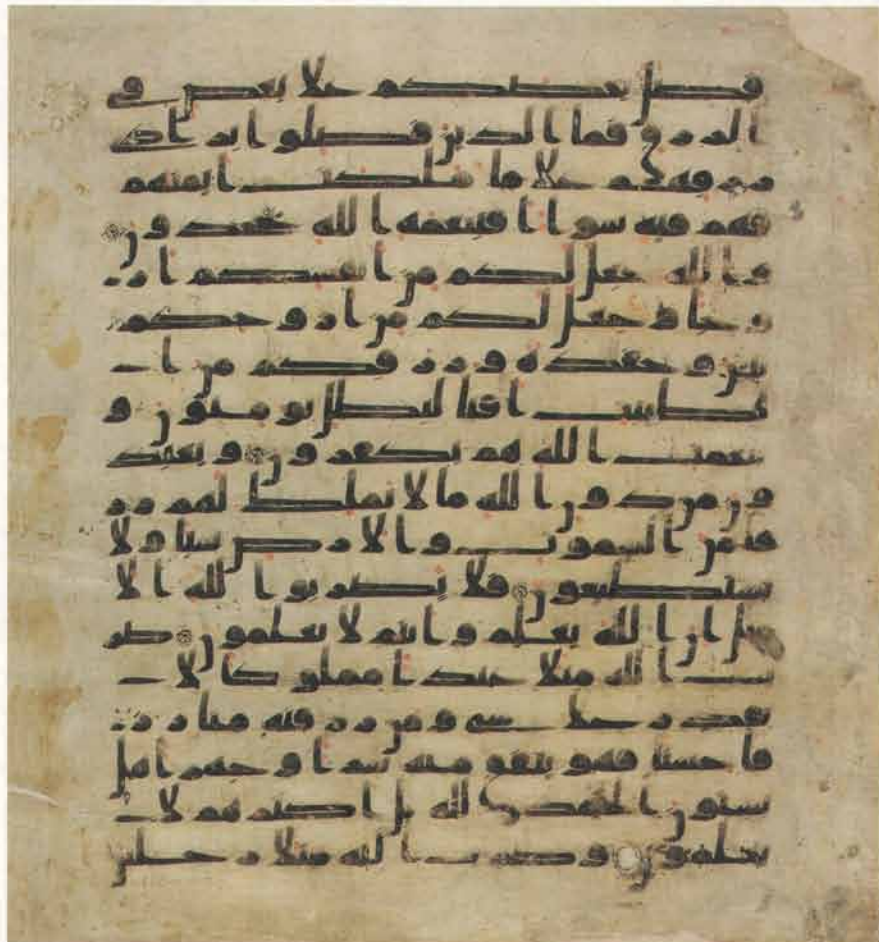 فضل بعضكم على بعض في
الرزق فما الذين فضلوا برادي
رزقهم على ما ملكت ايمنهم
فهم فيه سوا افبنعمه الله يجحدون
والله جعل لكم من انفسكم از
وجا وجعل لكم من ازوجكم
بنين وحفده ورزقكم من ا
لطيبت افبالبطل يومنون و
بنعمت الله هم يكفرون ويعبد
ون من دون الله ما لا يملك لهم رز
قا من السموت والارض شيا ولا
يستطيعون فلا تضربوا لله الا
مثل ان الله يعلم وانتم لا تعلمون ضر
ب الله مثلا عبدا مملوكا لا
يقدر على شي ومن رزقنه منا رز
قا حسنا فهو ينفق منه سرا وجهرا هل
يستون الحمد لله بل اكثرهم لا
يعلمون وضرب الله مثلا رجلين